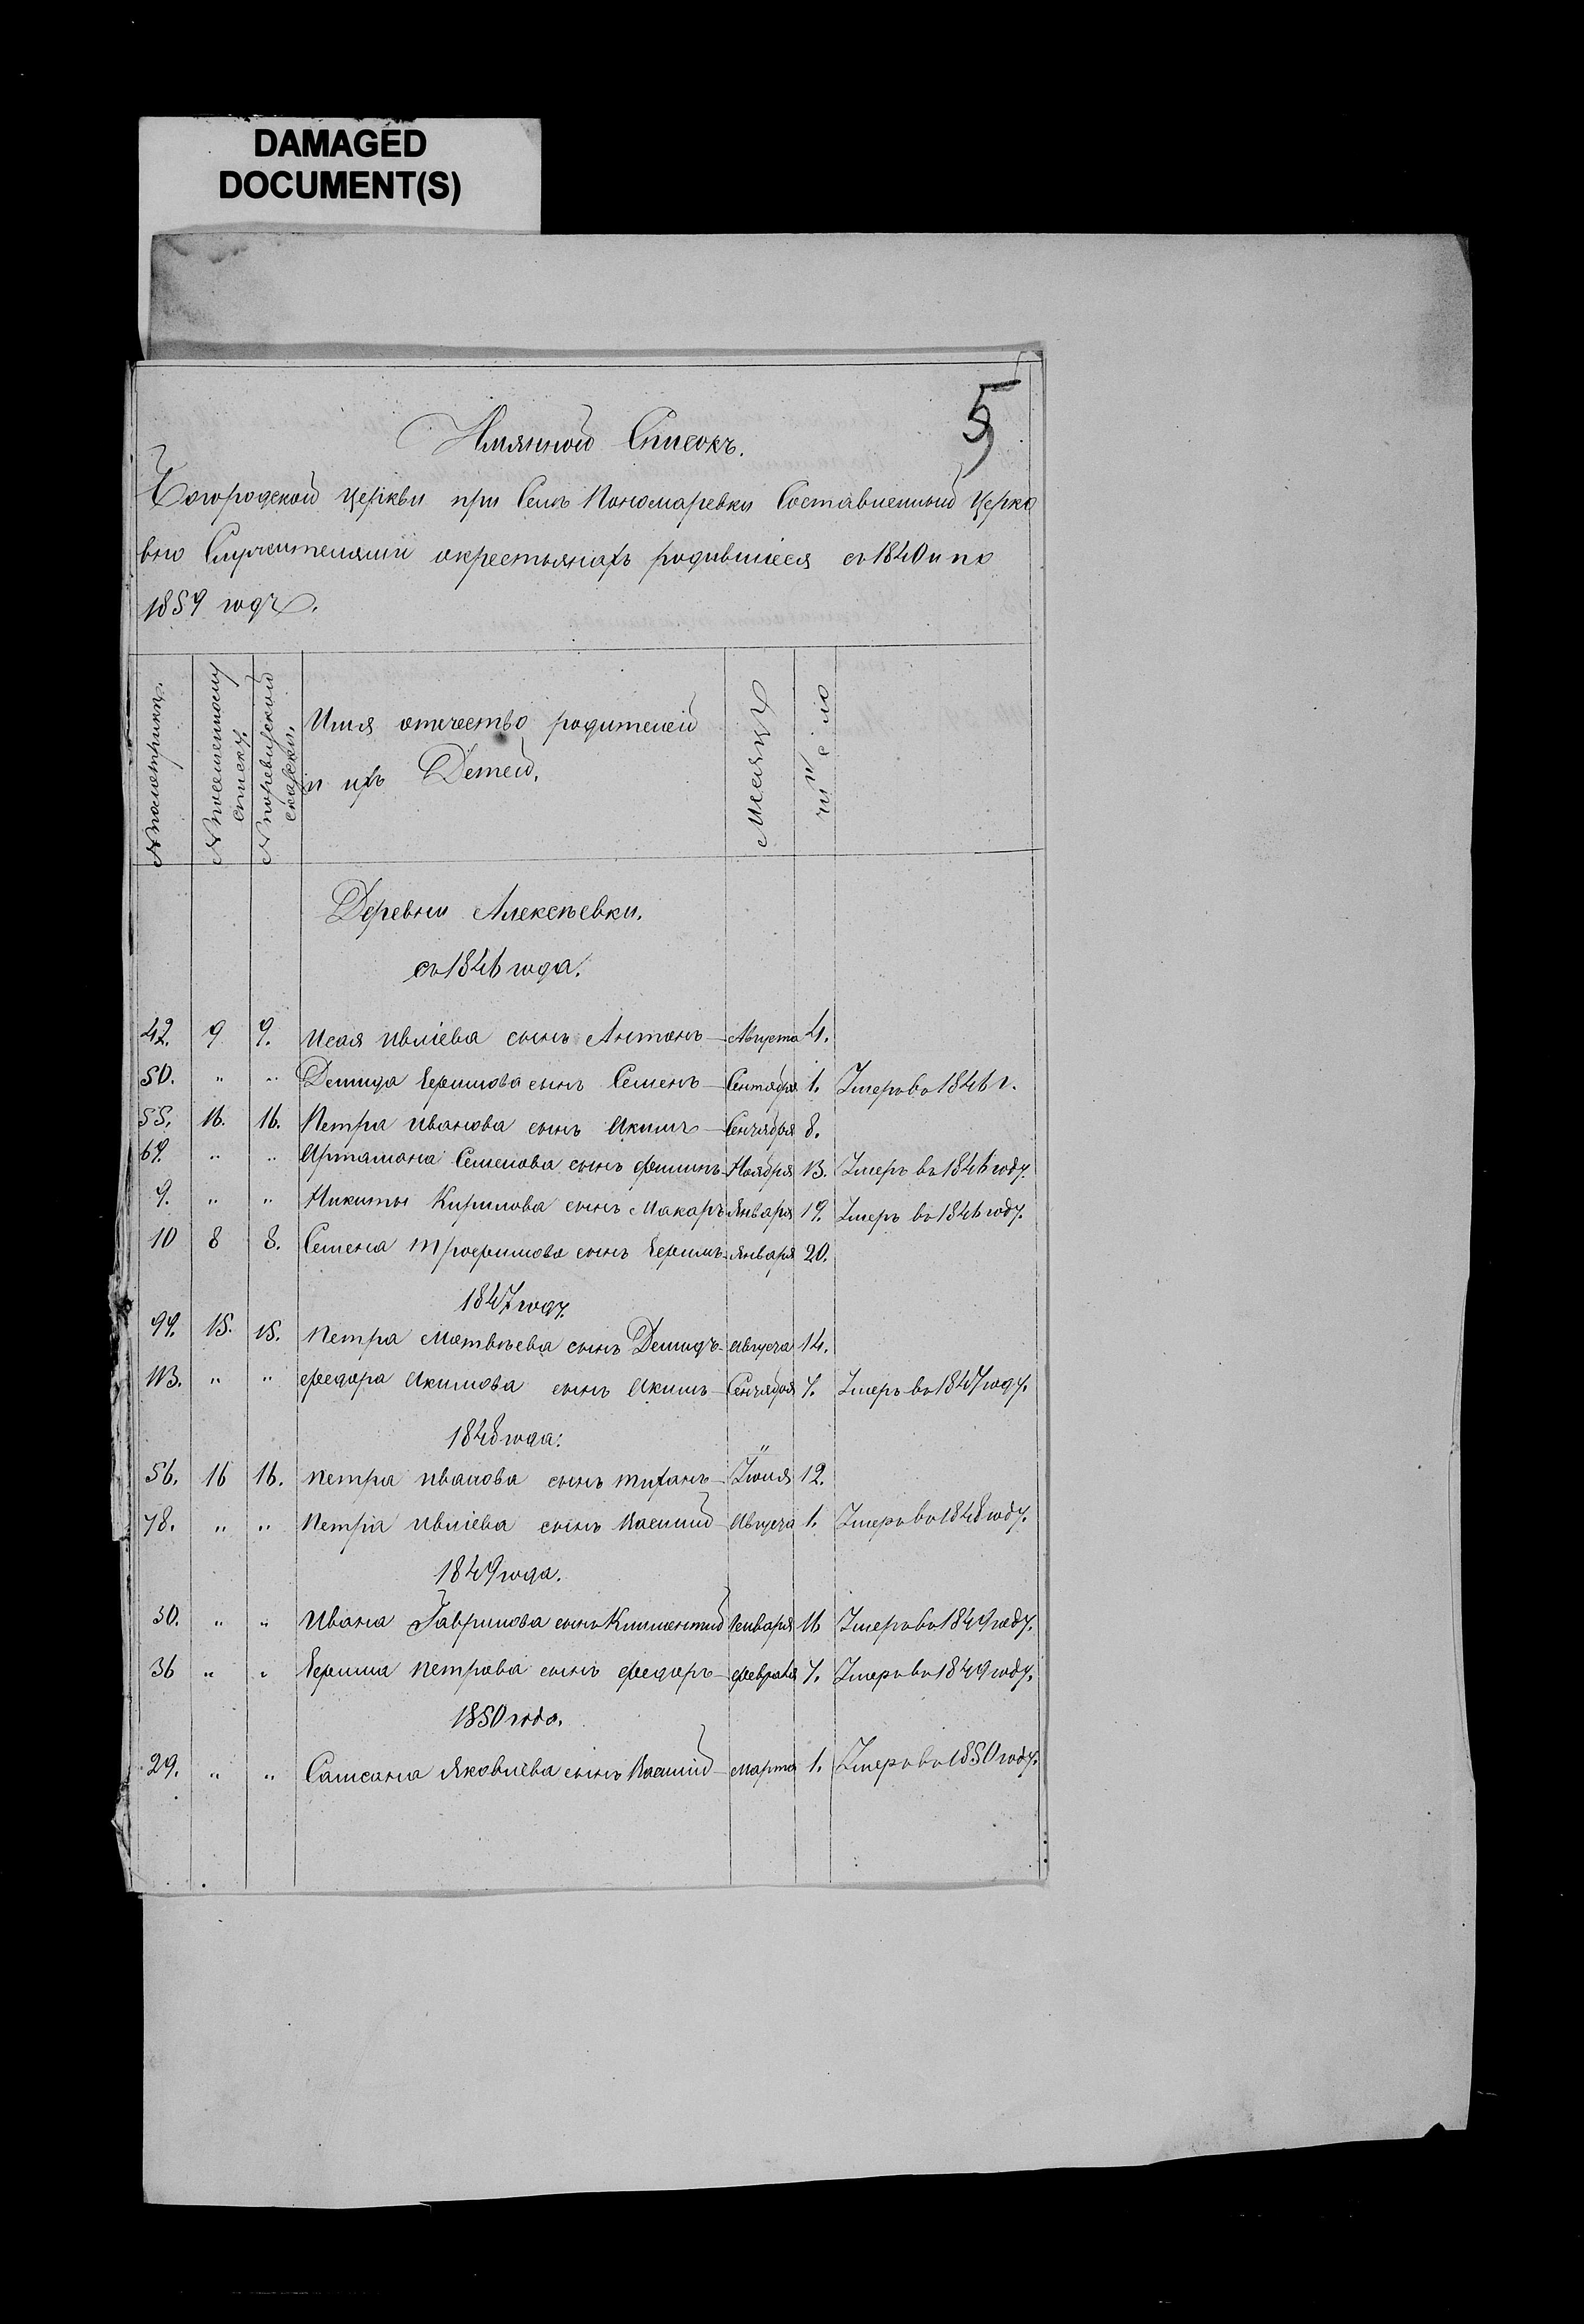 DAMAGED
DOCUMENT(S)
5
Имянной Списокъ.
Богородской церкви при Селѣ Пономаревки Составленный Церко
вно Служителями окрестьянахъ родившіеся съ 1840 и по
1859 годъ.
№ пометрики.
№ посемейному
списку.
№ поревизской
скаски.
Имя отчество родителей
и ихъ Детей.
Месяцъ
число
Деревни Алексѣевки.
съ 1846 года.
42. 9 9. Исая Ивлiева сынъ Антонъ - Августа 4.
50. " " Демида Ефимова сынъ Семенъ - Сентября 1. Умеръ въ 1846 г.
55. 16. 16. Петра Иванова сынъ Акимъ - Сентября 8.
69. " " Артамона Семенова сынъ Филипъ - Ноября 13. Умеръ въ 1846 году.
9. " " Никиты Кирилова сынъ Макаръ Января 19. Умеръ въ 1846 году.
10 8 8. Семена Трофимова сынъ Ефимъ - Января 20.
1847 году.
99. 15. 15. Петра Матвѣева сынъ Демидъ - Августа 14.
113. " " Федора Акимова сынъ Акимъ - Сентября 7. Умеръ въ 1847 году.
1848 года.
56. 16 16. Петра Иванова сынъ Тихонъ - Iюня 12.
78. " " Петра Ивлiева сынъ Василий - Августа 1. Умеръ въ 1848 году.
1849 года.
30. " " Ивана Гаврилова сынъ Климентий Генваря 16 Умеръ въ 1849 году.
36 " " Ефима Петрова сынъ Федоръ - Февраля 7. Умеръ въ 1849 году.
1850 года.
29. " " Самсона Яковлева сынъ Василий - Марта 1. Умеръ въ 1850 году.